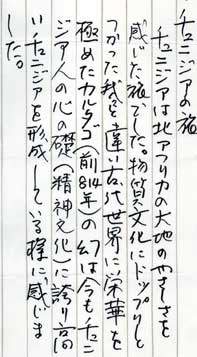 チュニジアの旅
チュニジアは北アフリカの大地のやさしさを
感じた旅でした。物質文化にドップリと
つかった我々と違い古代世界に栄華を
極めたカルタゴ(前814年)の幻は今もチュニ
ジア人の心の礎(精神文化)に誇り高
いチュニジアを形成している様に感じま
した。